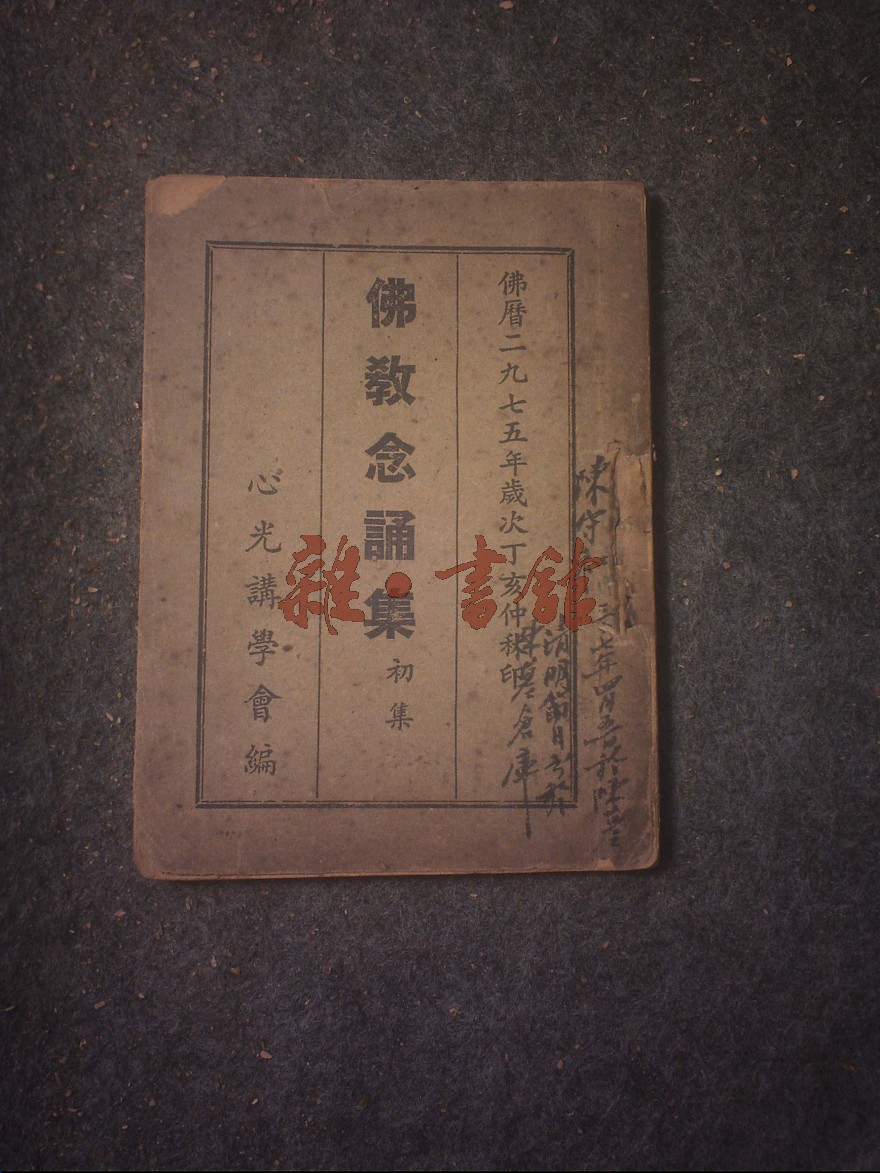 佛曆二九七五年歲次丁亥仲秋印
佛教念誦集
初集
心光講學會編
陳守
七年四月五日於陳
清明節日
倉庫
雜·書舘